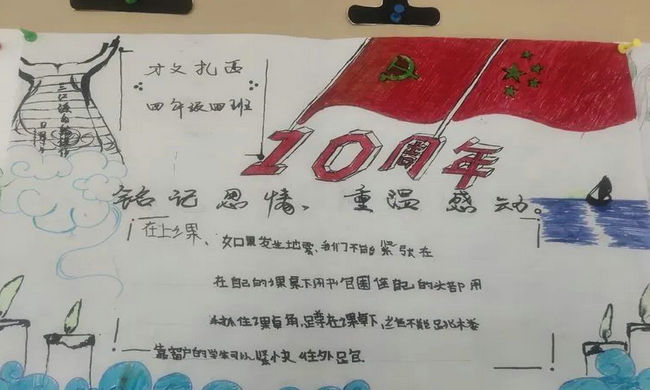 才文扎西
四年级四班
10周年
铭记恩情、重温感动。
在上课、如果发生地震、我们不能紧张在
在自己的课桌下用书包围住自己的头部用
抓住课桌角,蹲在课桌下,
靠窗户的学生可以